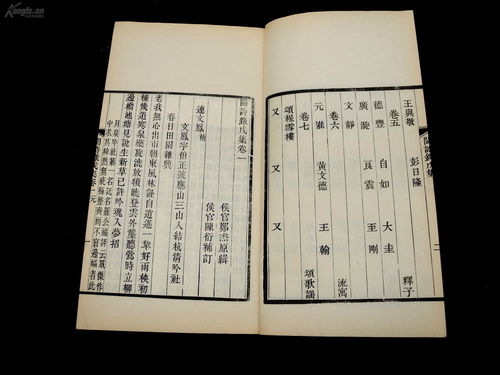 Kongfz.cn
王與敬 彭日隆
卷五 釋子
德豐 自如 大圭
廣漩 良震 至剛
文靜
卷六 流寓
元淮 黃文德 王翰
卷七 頌歌謠
頌程雪樓
又 又 又
閩詩錄戊集
二
閩詩錄戊集卷一
侯官鄭杰原輯
侯官陳衍補訂
連文鳳 補
文鳳字伯正號應山三山人結杭清吟社
春日田園雜興
老我無心出市朝東風林壑自逍遙一犂好雨秧初
種幾道寒泉藥旋澆放犢曉登雲外壠聽鶯時立柳
邊橋池塘見說生新草已許吟魂入夢招